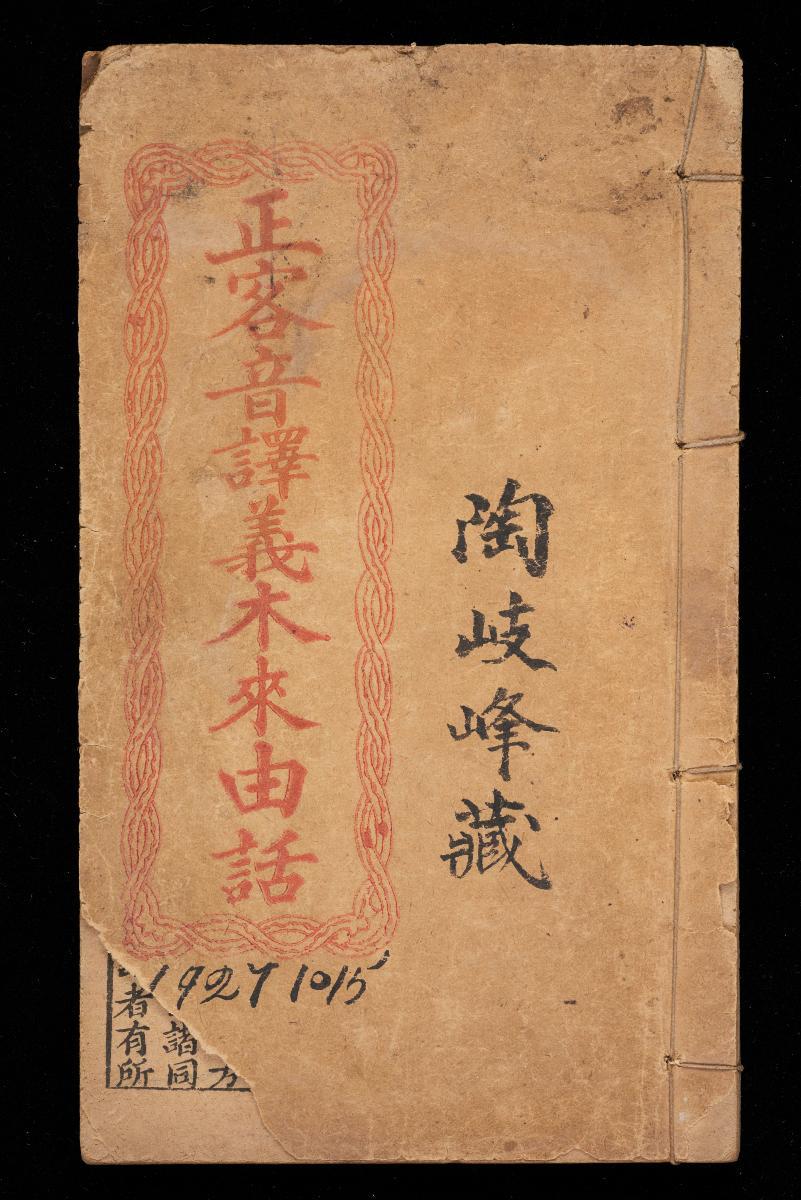 陶岐峰藏
正客音譯義木來由話
1927 10/5
方
諸同
者有所